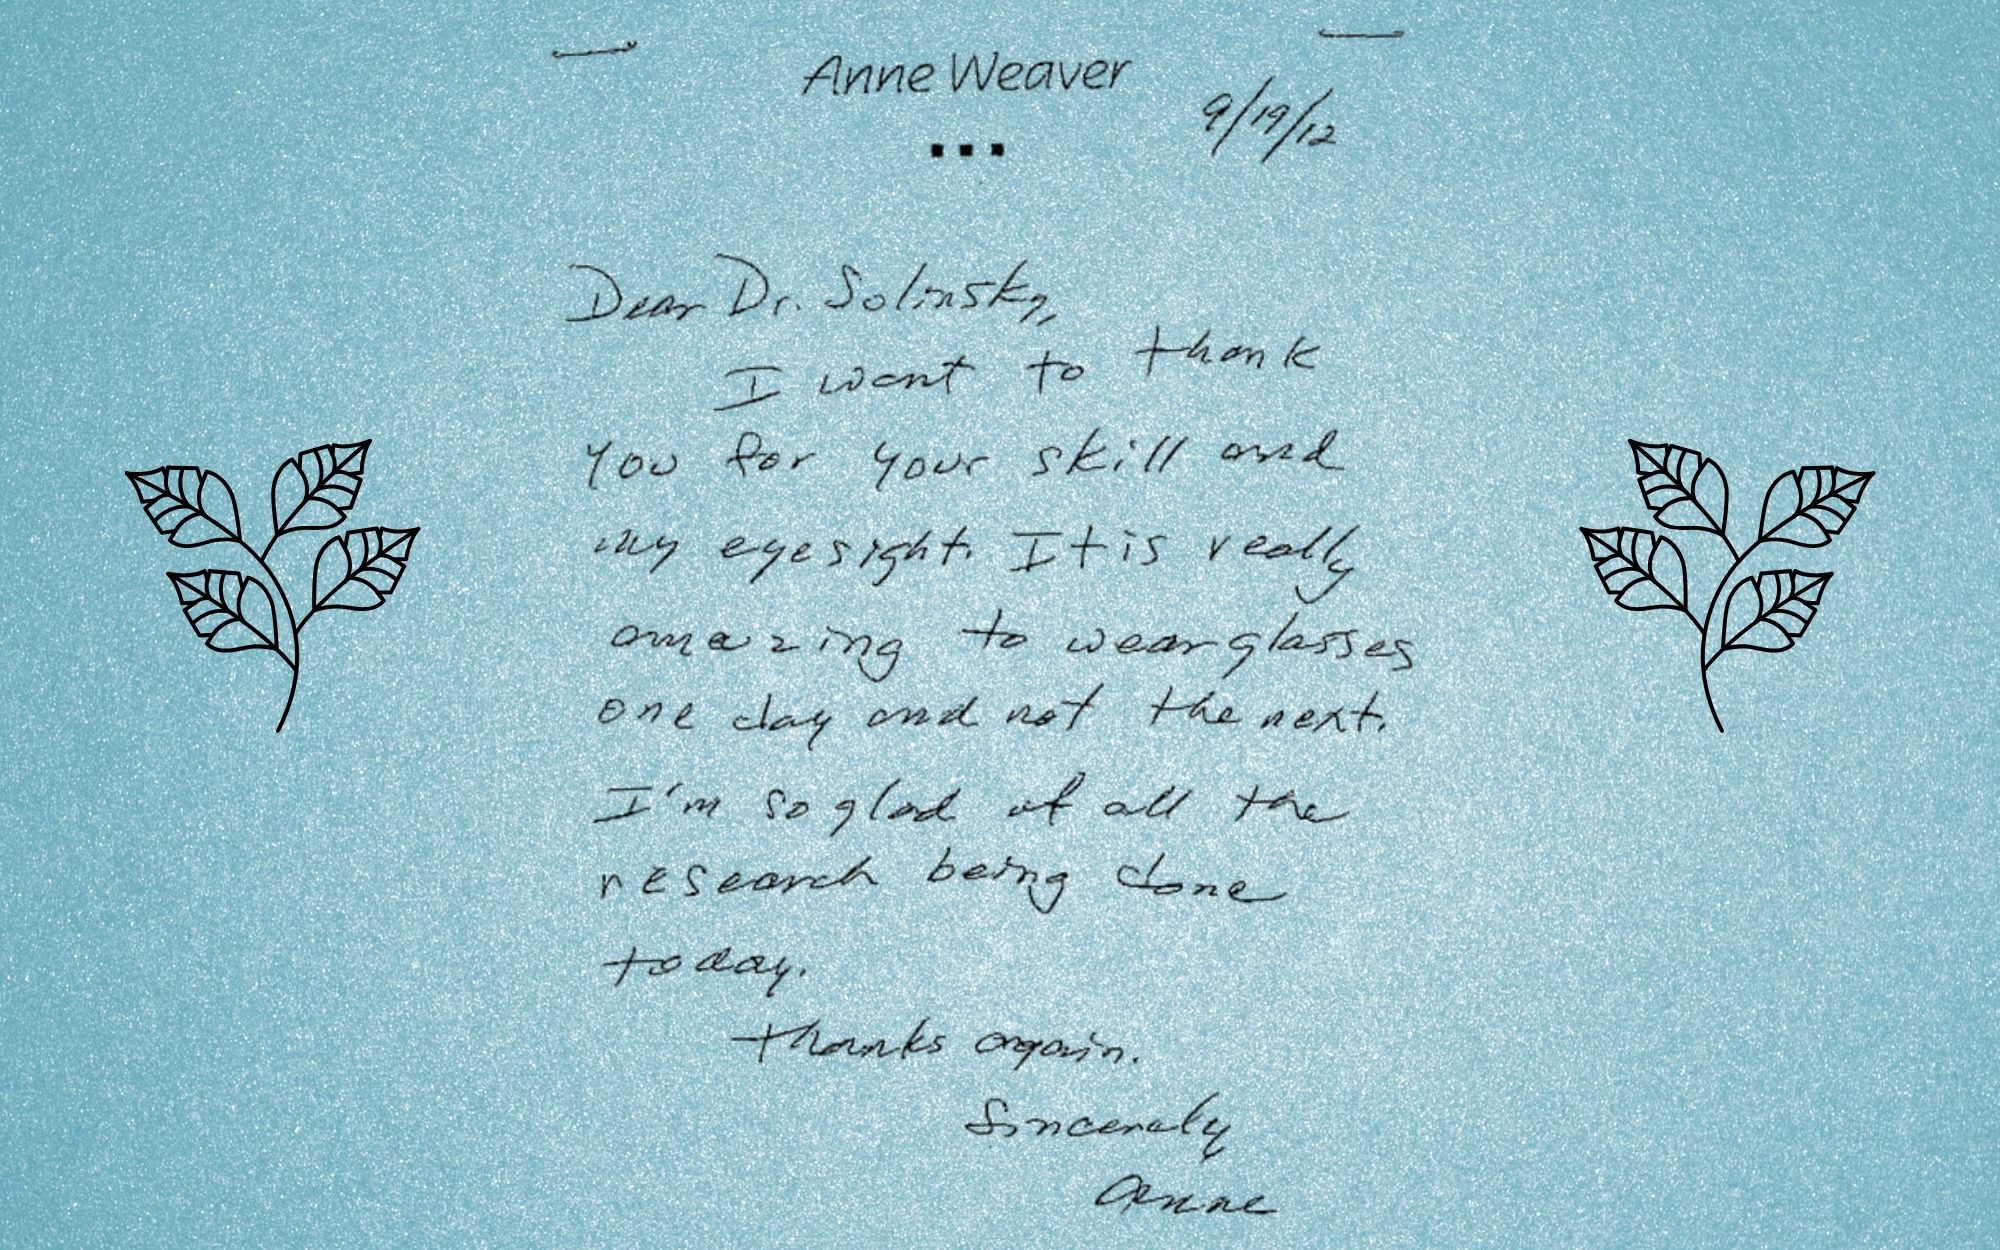 Anne Weaver
9/19/12
Dear Dr. Solinsky,
I want to thank
you for your skill and
my eyesight. It is really
amazing to wear glasses
one day and not the next.
I'm so glad of all the
research being done
today.
Thanks again.
Sincerely
Anne